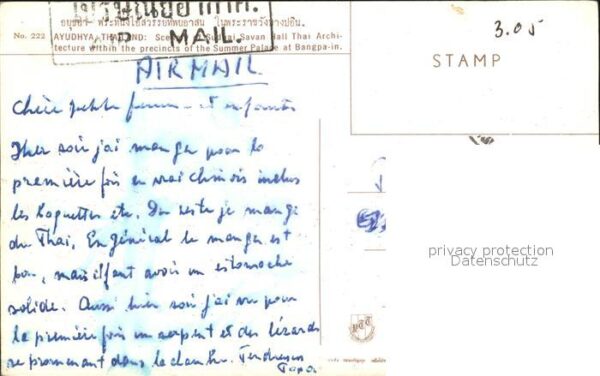 ไปรษณีย์อากาศ
P MAIL.
อยุธยา
พระที่นั่งไอสวรรยทิพยอาสน์ ในพระราชวังบางปะอิน.
No. 222 AYUDHYA, THAILAND: Savan Hall Thai Archi-
tecture within the precincts of the Summer Palace at Bangpa-in.
3.05
STAMP
AIRMAIL
Chère petite femme et enfants
Hier soir j'ai mangé pour la
première fois en vrai chinois inclus
les baguettes etc. Du reste je mange
du Thai. En général le manger est
bon, mais il faut avoir un estomache
solide. Aussi hier soir j'ai vu pour
la première fois un serpent et des lézards
se promenant dans la chambre. Tendresses
Papa
privacy protection
Datenschutz